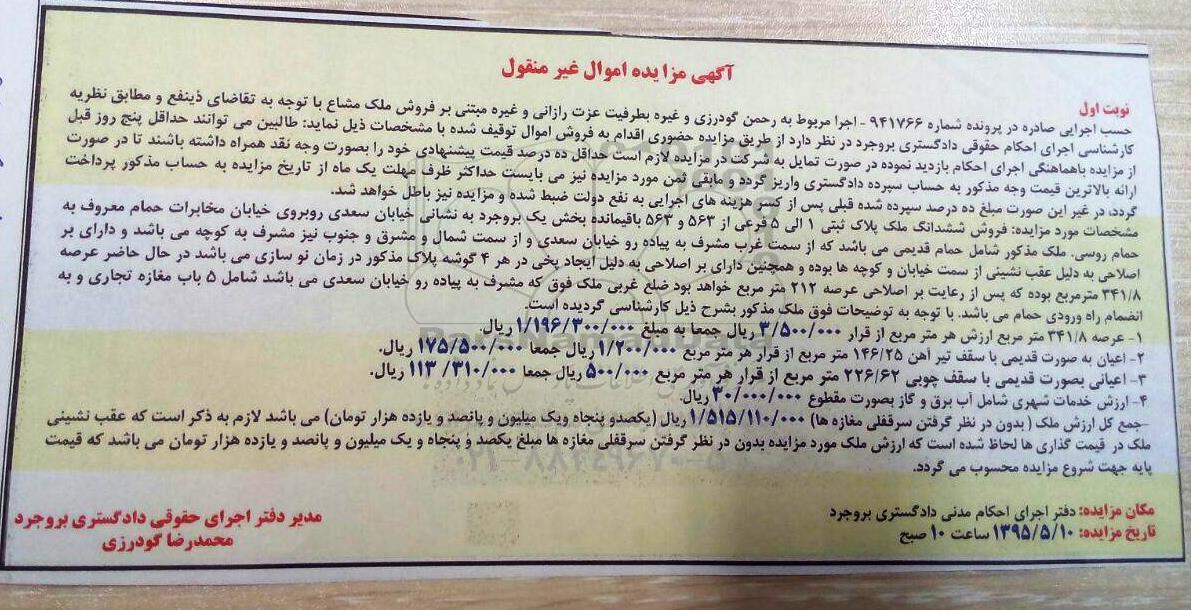 آگهی مزایده اموال غیر منقول
نوبت اول
حسب اجرایی صادره در پرونده شماره ۹۴۱۷۶۶ - اجرا مربوط به رحمن گودرزی و غیره بطرفیت عزت رازانی و غیره مبتنی بر فروش ملک مشاع با توجه به تقاضای ذینفع و مطابق نظریه
کارشناسی اجرای احکام حقوقی دادگستری بروجرد در نظر دارد از طریق مزایده حضوری اقدام به فروش اموال توقیف شده با مشخصات ذیل نماید: طالبین می توانند حداقل پنج روز قبل
از مزایده باهماهنگی اجرای احکام بازدید نموده در صورت تمایل به شرکت در مزایده لازم است حداقل ده درصد قیمت پیشنهادی خود را بصورت وجه نقد همراه داشته باشند تا در صورت
ارائه بالاترین قیمت وجه مذکور به حساب سپرده دادگستری واریز گردد و مابقی ثمن مورد مزایده نیز می بایست حداکثر ظرف مهلت یک ماه از تاریخ مزایده به حساب مذکور پرداخت
گردد، در غیر این صورت مبلغ ده درصد سپرده شده قبلی پس از کسر هزینه های اجرایی به نفع دولت ضبط شده و مزایده نیز باطل خواهد شد.
مشخصات مورد مزایده: فروش ششدانگ ملک پلاک ثبتی ۱ الی ۵ فرعی از ۵۶۳ و ۵۶۳ باقیمانده بخش یک بروجرد به نشانی خیابان سعدی روبروی خیابان مخابرات حمام معروف به
حمام روسی. ملک مذکور شامل حمام قدیمی می باشد که از سمت غرب مشرف به پیاده رو خیابان سعدی و از سمت شمال و مشرق و جنوب نیز مشرف به کوچه می باشد و دارای بر
اصلاحی به دلیل عقب نشینی از سمت خیابان و کوچه ها بوده و همچنین دارای بر اصلاحی به دلیل ایجاد پخی در هر ۴ گوشه پلاک مذکور در زمان نو سازی می باشد در حال حاضر عرصه
۳۴۱/۸ مترمربع بوده که پس از رعایت بر اصلاحی عرصه ۲۱۲ متر مربع خواهد بود ضلع غربی ملک فوق که مشرف به پیاده رو خیابان سعدی می باشد شامل ۵ باب مغازه تجاری و به
انضمام راه ورودی حمام می باشد. با توجه به توضیحات فوق ملک مذکور بشرح ذیل کارشناسی گردیده است.
۱- عرصه ۳۴۱/۸ متر مربع ارزش هر متر مربع از قرار ۳/۵۰۰/۰۰۰ ریال جمعا به مبلغ ۱/۱۹۶/۳۰۰/۰۰۰ ریال.
۲- اعیان به صورت قدیمی با سقف تیر آهن ۱۴۶/۲۵ متر مربع از قرار هر متر مربع ۱/۲۰۰/۰۰۰ ریال جمعا ۱۷۵/۵۰۰/۰۰۰ ریال.
۳- اعیانی بصورت قدیمی با سقف چوبی ۲۲۶/۶۲ متر مربع از قرار هر متر مربع ۵۰۰/۰۰۰ ریال جمعا ۱۱۳/۳۱۰/۰۰۰ ریال.
۴- ارزش خدمات شهری شامل آب برق و گاز بصورت مقطوع ۳۰/۰۰۰/۰۰۰ ریال.
-جمع کل ارزش ملک ( بدون در نظر گرفتن سرقفلی مغازه ها) ۱/۵۱۵/۱۱۰/۰۰۰ ریال (یکصدو پنجاه ویک میلیون و پانصد و یازده هزار تومان) می باشد لازم به ذکر است که عقب نشینی
ملک در قیمت گذاری ها لحاظ شده است که ارزش ملک مورد مزایده بدون در نظر گرفتن سرقفلی مغازه ها مبلغ یکصد و پنجاه و یک میلیون و پانصد و یازده هزار تومان می باشد که قیمت
پایه جهت شروع مزایده محسوب می گردد.
مکان مزایده: دفتر اجرای احکام مدنی دادگستری بروجرد
تاریخ مزایده: ۱۳۹۵/۵/۱۰ ساعت ۱۰ صبح
مدیر دفتر اجرای حقوقی دادگستری بروجرد
محمدرضا گودرزی
ParsNamadData